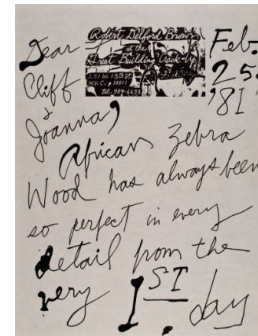 Dear
Cliff
&
Joanna,
Robert Delford Brown
at the
Great Building Crack-Up
251 W. 13th ST.
N.Y.C. 10011
Feb.
25.
'81
African Zebra
Wood has always been
so perfect in every
detail from the
very 1ST day